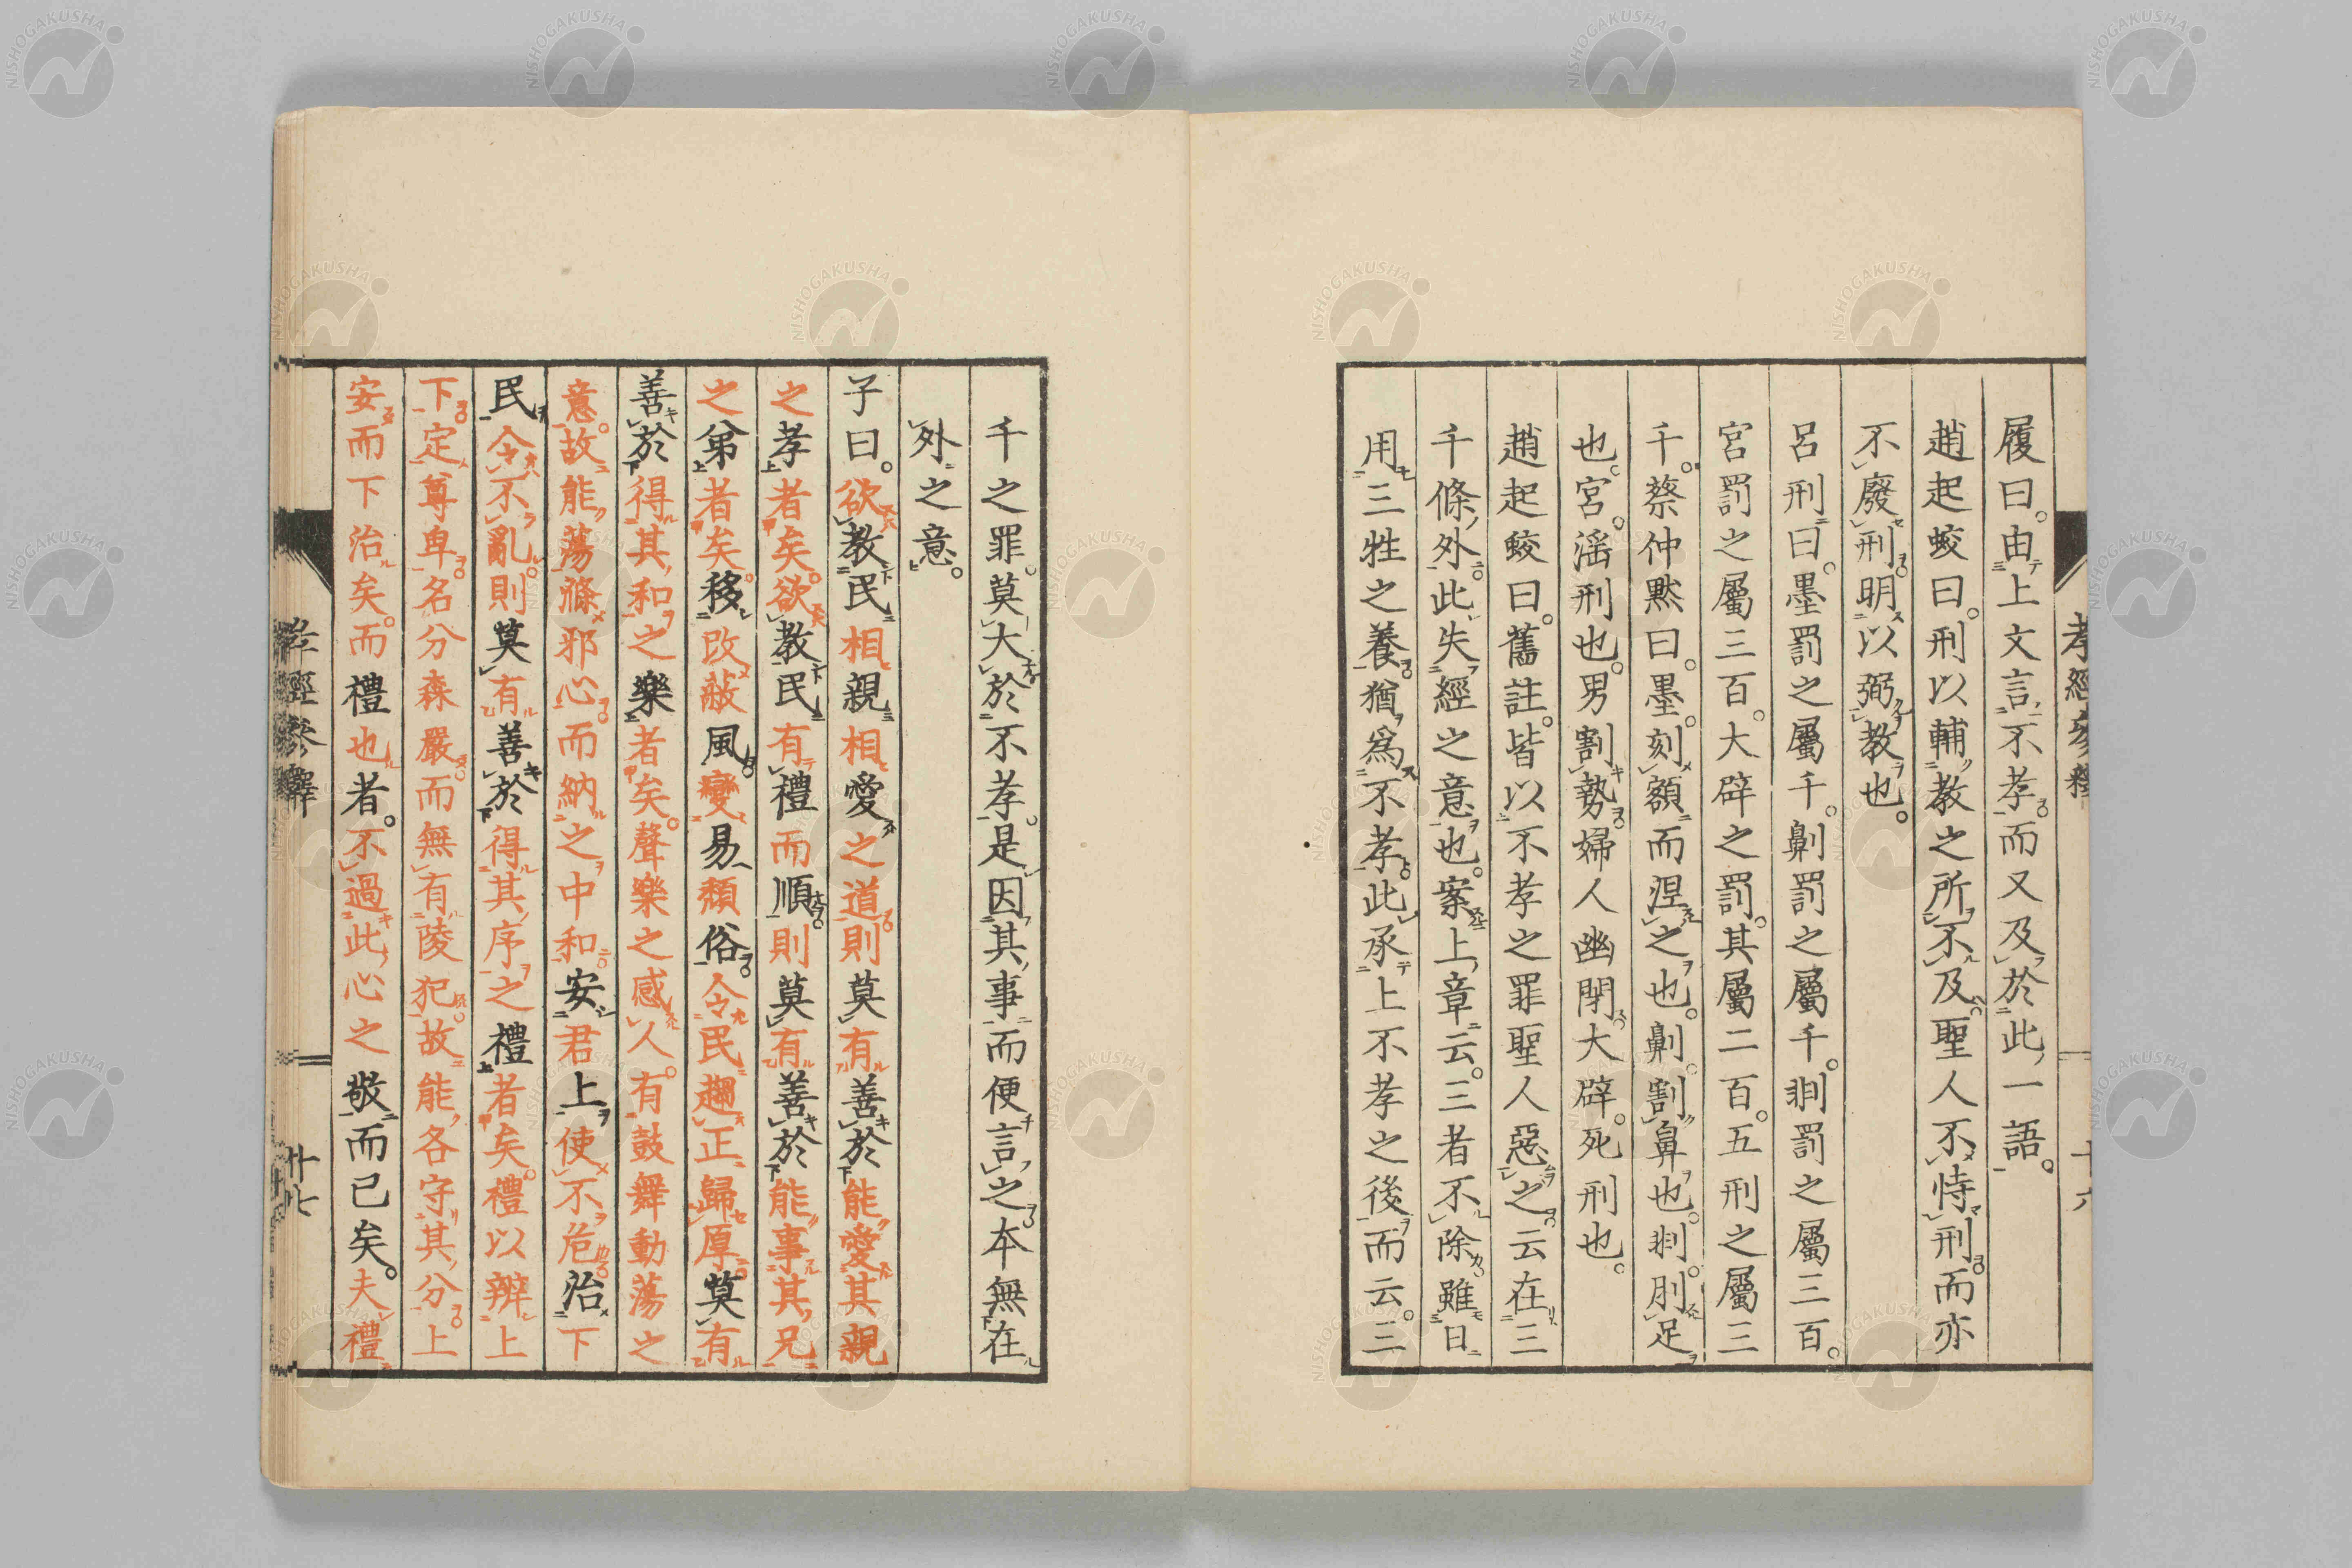 履曰。由上文言不孝而又及於此一語。
趙起蛟曰。刑以輔教之所不及。聖人不恃刑而亦
不廢刑明以弼教也。
呂刑曰。墨罰之屬千。劓罰之屬千。剕罰之屬三百。
宮罰之屬三百。大辟之罰。其屬二百。五刑之屬三
千。蔡仲黙曰。墨。刻額而涅之也。劓。割鼻也。剕。刖足
也。宮。滛刑也。男割勢婦人幽閉。大辟。死刑也。
趙起蛟曰。舊註。皆以不孝之罪聖人惡之。云在三
千條外。此失經之意也。案上章云。三者不除雖日
用三牲之養猶爲不孝。此承上不孝之後而云。三
千之罪莫大於不孝。是因其事而便言之本無在
外之意。
子曰。欲教民相親相愛之道則莫有善於能愛其親
之孝者矣。欲教民有禮而順。則莫有善於能事其兄
之弟者矣。移改敝風變易頽俗。令民趨正歸厚莫有
善於得其和之樂者矣。聲樂之感人。有鼓舞動蕩之
意。故能蕩滌邪心而納之中和。安君上使不危。治下
民令不亂。則莫有善於得其序之禮者矣。禮以辨上
下。定尊卑。名分森嚴。而無有陵犯。故能各守其分。上
安而下治矣。而禮也者。不過此心之敬而已矣。夫禮
孝經參釋
孝經參釋 廿七
NISHOGAKUSHA